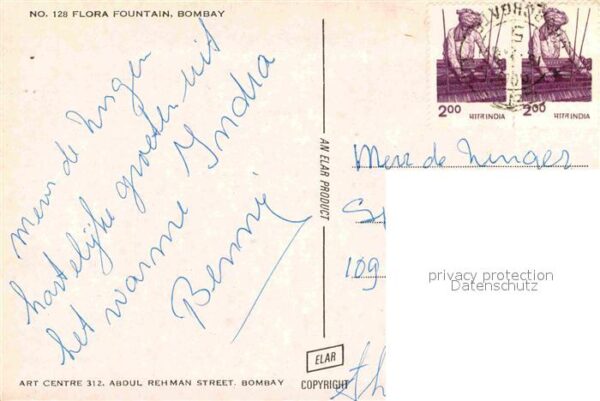 NO. 128 FLORA FOUNTAIN, BOMBAY
Mevr de Zwger
hartelijke groeten uit
het warme India
Benni
AN ELAR PRODUCT
ELAR
COPYRIGHT
ART CENTRE 312, ABDUL REHMAN STREET, BOMBAY
2.00 भारत INDIA
2.00 भारत INDIA
Mevr de
109
privacy protection
Datenschutz